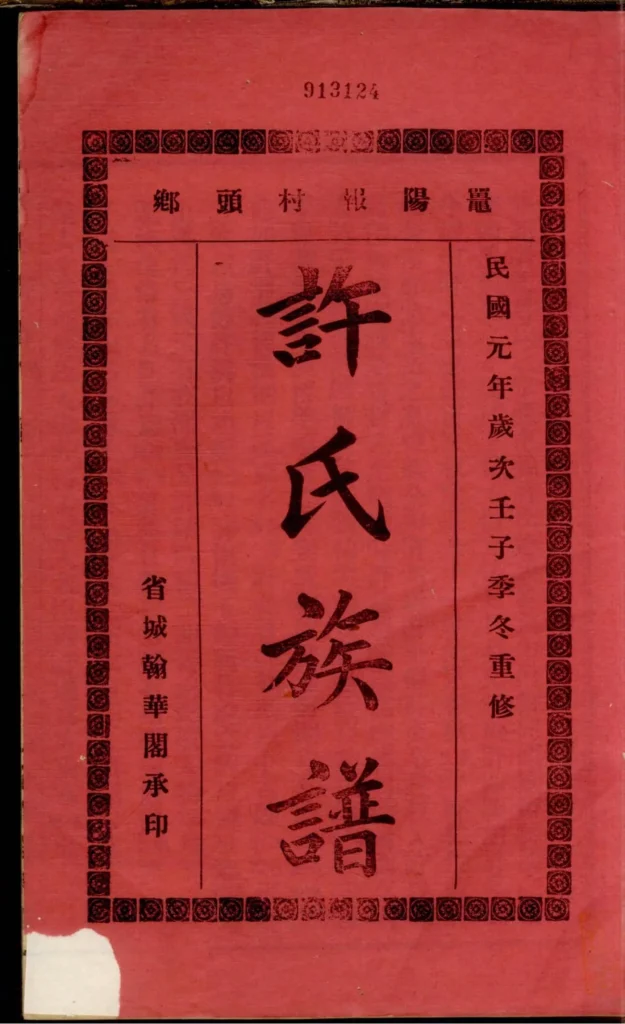 913124
鼉陽報村頭鄉
民國元年歲次壬子季冬重修
許氏族譜
省城翰華閣承印